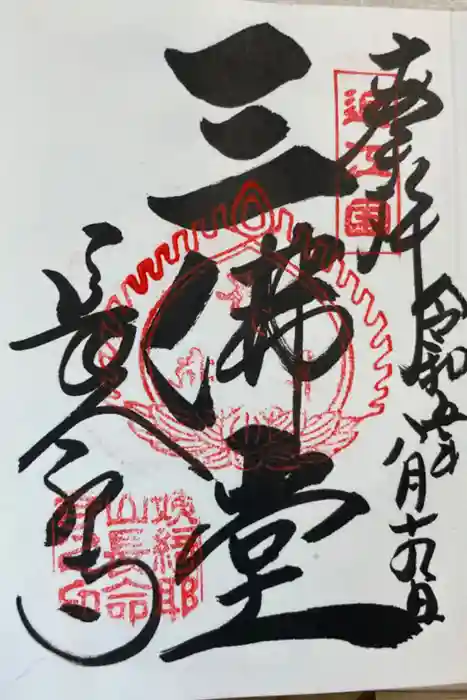 奉拝
令和四年八月十九日
近江國
三佛堂
長命寺
姨綺耶
山長命
寺之印